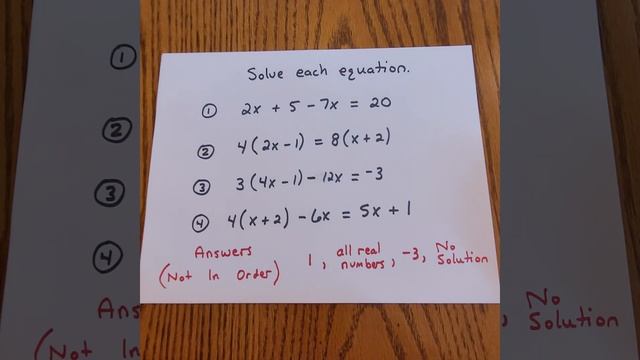 Solve each equation.
① 2x + 5 - 7x = 20
② 4(2x-1) = 8(x+2)
③ 3(4x-1) - 12x = -3
④ 4(x+2) - 6x = 5x + 1
Answers
(Not In Order)
1, all real numbers, -3, No Solution
①
②
③
④
Ans
(Not In
, No
Solution